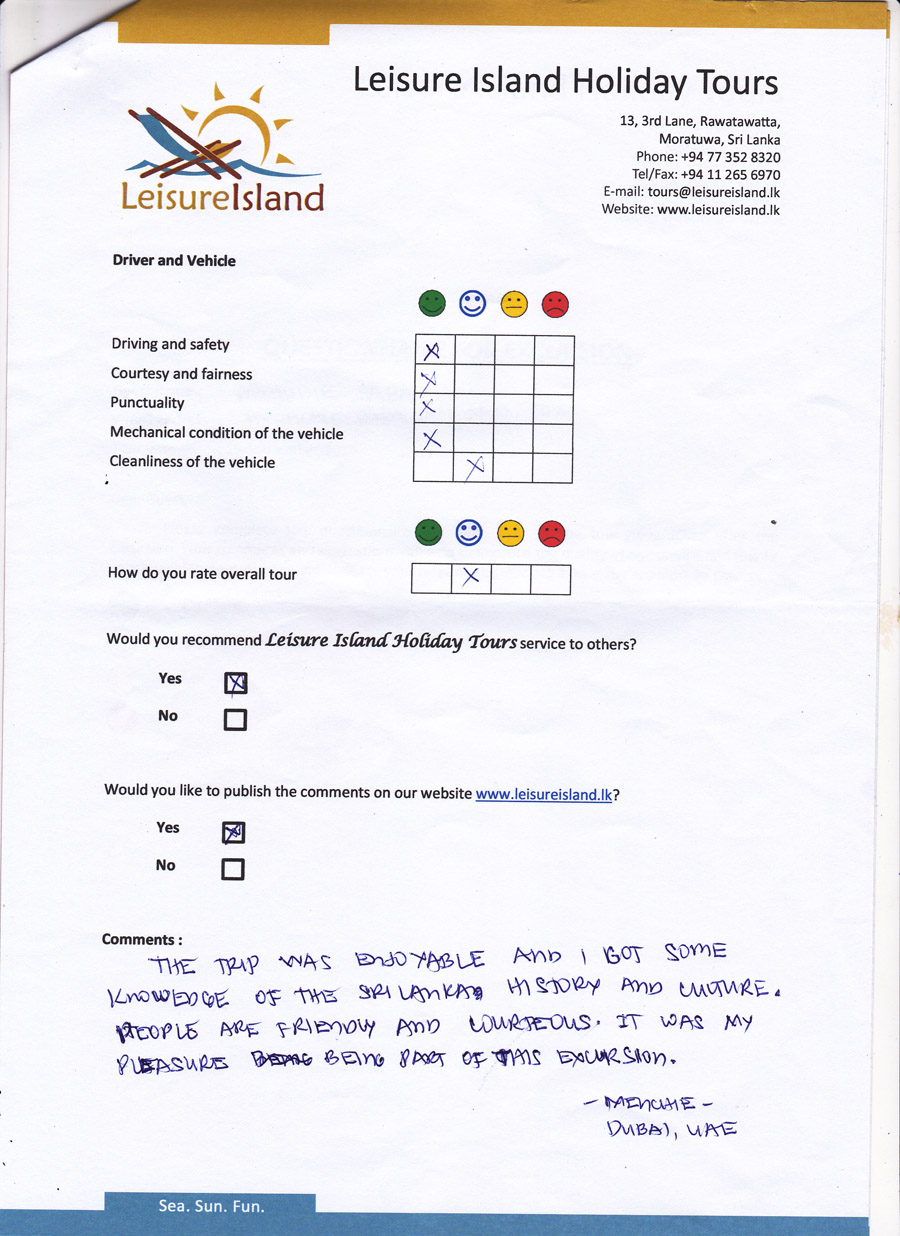 Leisure Island Holiday Tours
13, 3rd Lane, Rawatawatta,
Moratuwa, Sri Lanka
Phone: +94 77 352 8320
Tel/Fax: +94 11 265 6970
E-mail: tours@leisureisland.lk
Website: www.leisureisland.lk
LeisureIsland
Driver and Vehicle
Driving and safety
Courtesy and fairness
Punctuality
Mechanical condition of the vehicle
Cleanliness of the vehicle
How do you rate overall tour
Would you recommend Leisure Island Holiday Tours service to others?
Yes
No
Would you like to publish the comments on our website www.leisureisland.lk?
Yes
No
Comments :
THE TRIP WAS ENJOYABLE AND I GOT SOME
KNOWEDGE OF THE SRI LANKAN HISTORY AND CULTURE.
PEOPLE ARE FRIENDLY AND COURTEOUS. IT WAS MY
PLEASURE BEING PART OF THIS EXCURSION.
- MENCHIE -
DUBAI, UAE
Sea. Sun. Fun.